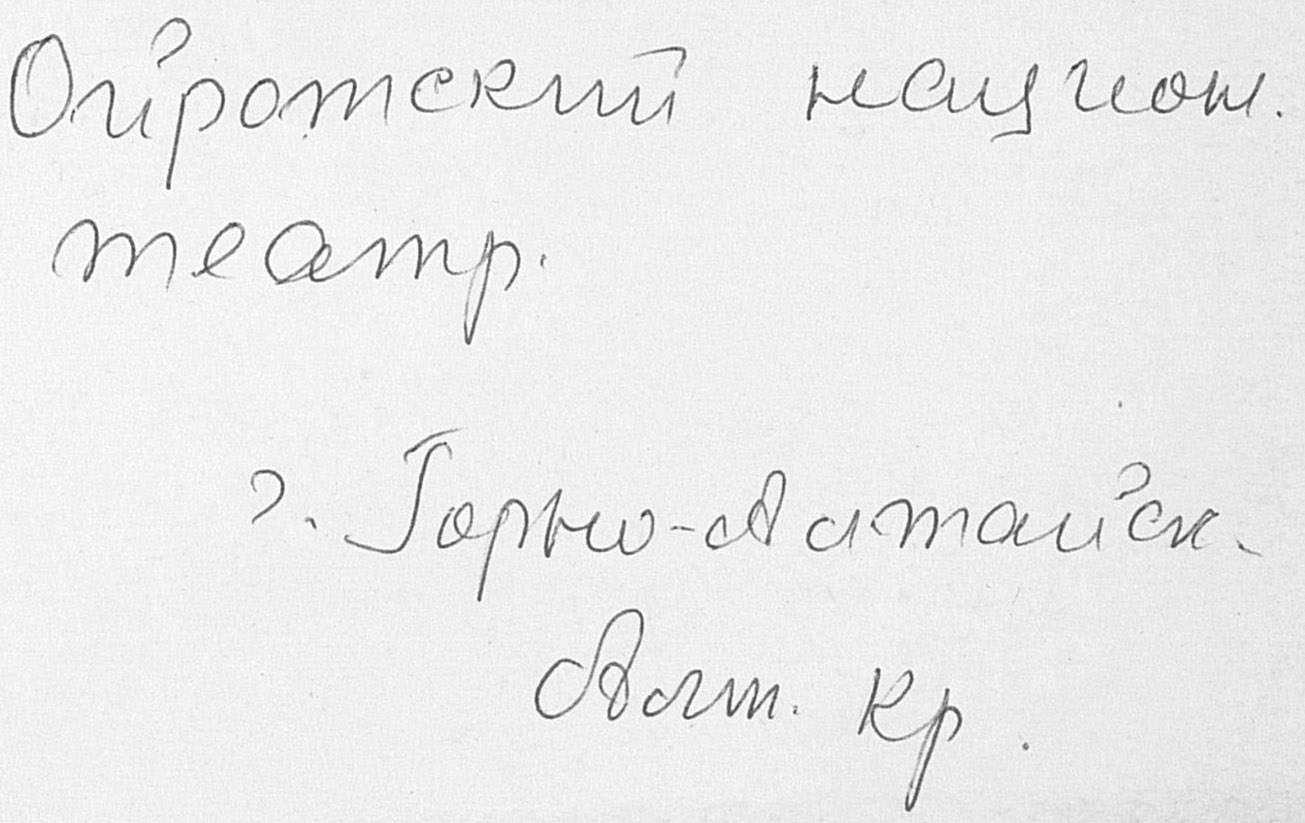 Ойротский национ.
театр.
г. Горно-Алтайск.
Алт. кр.